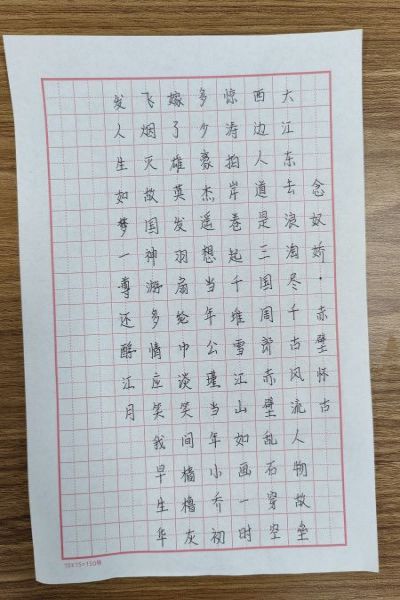 念奴娇·赤壁怀古
大江东去浪淘尽千古风流人物故垒
西边人道是三国周郎赤壁乱石穿空
惊涛拍岸卷起千堆雪江山如画一时
多少豪杰遥想当年公瑾当年小乔初
嫁了雄英发羽扇纶巾淡笑间樯橹灰
飞烟灭故国神游多情应笑我早生华
发人生如梦一尊还酹江月
10X15=150格